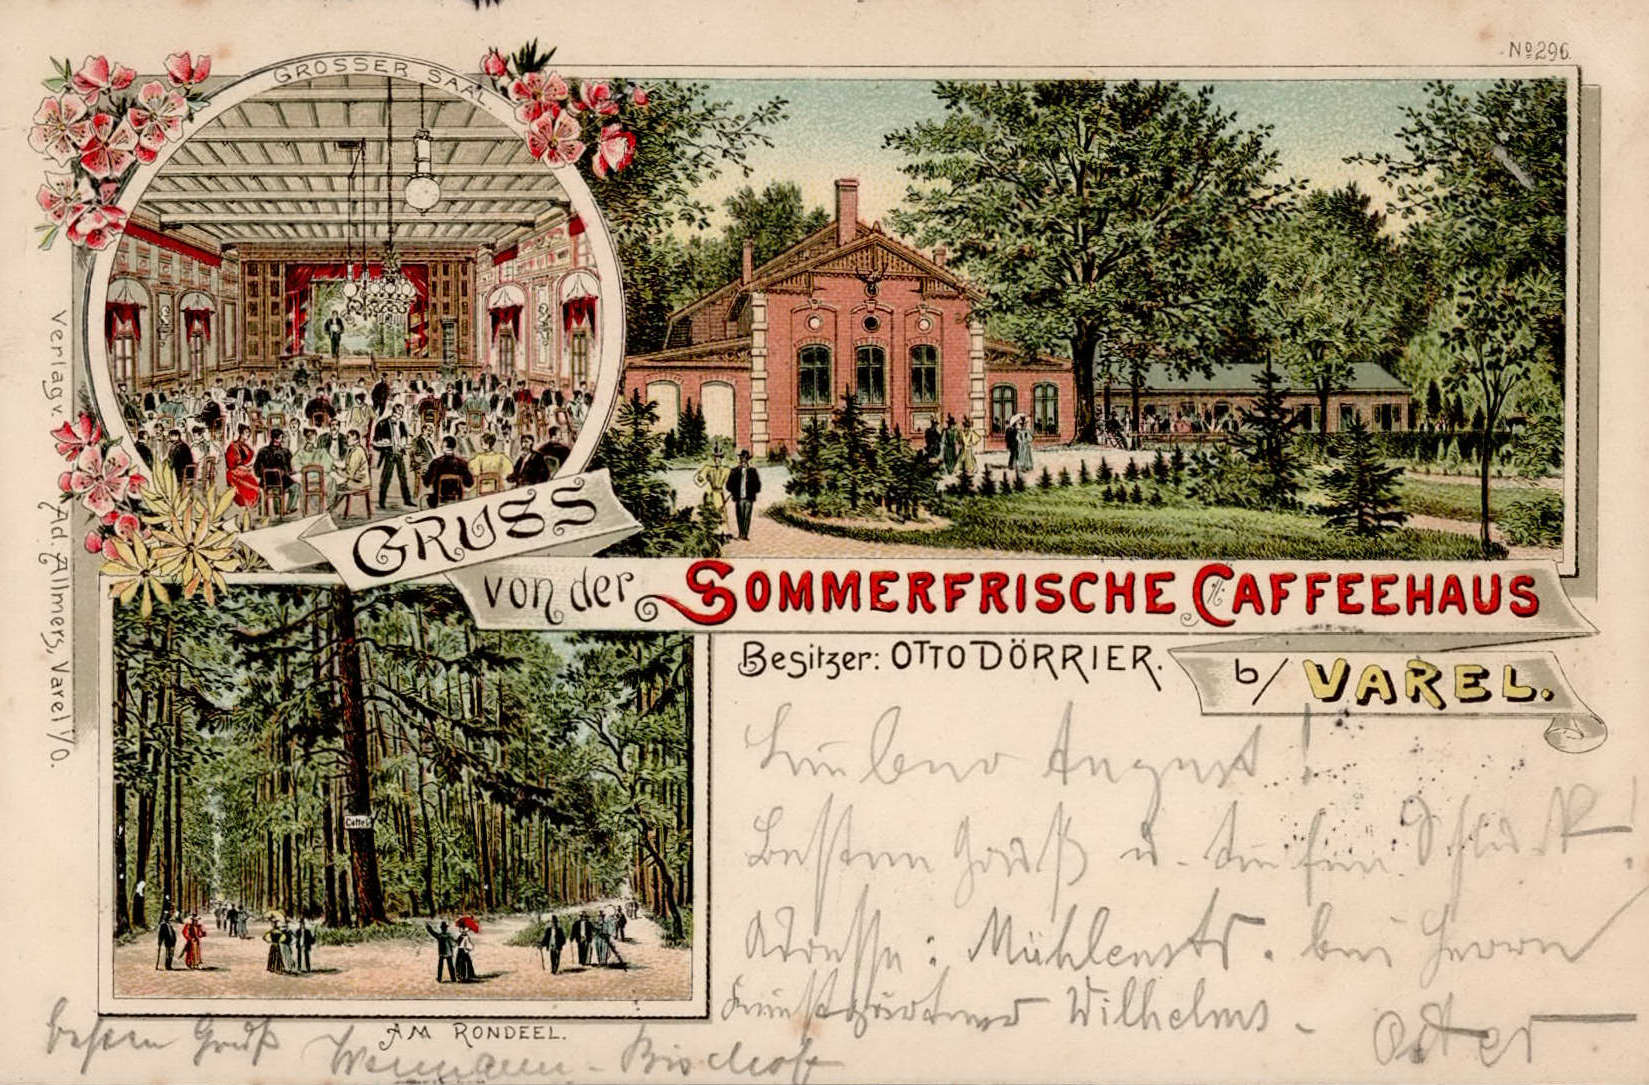 No 296.
GROSSER SAAL.
GRUSS
von der SOMMERFRISCHE CAFFEEHAUS
Besitzer: OTTO DÖRRIER.
b/ VAREL.
Verlag v. Ad. Allmers, Varel i/O.
Caffee
AM RONDEEL.
Lieber August!
Besten Gruß u.
Adresse: Mühlenstr. bei Herrn
Kunstgärtner Wilhelms.
besten Gruß